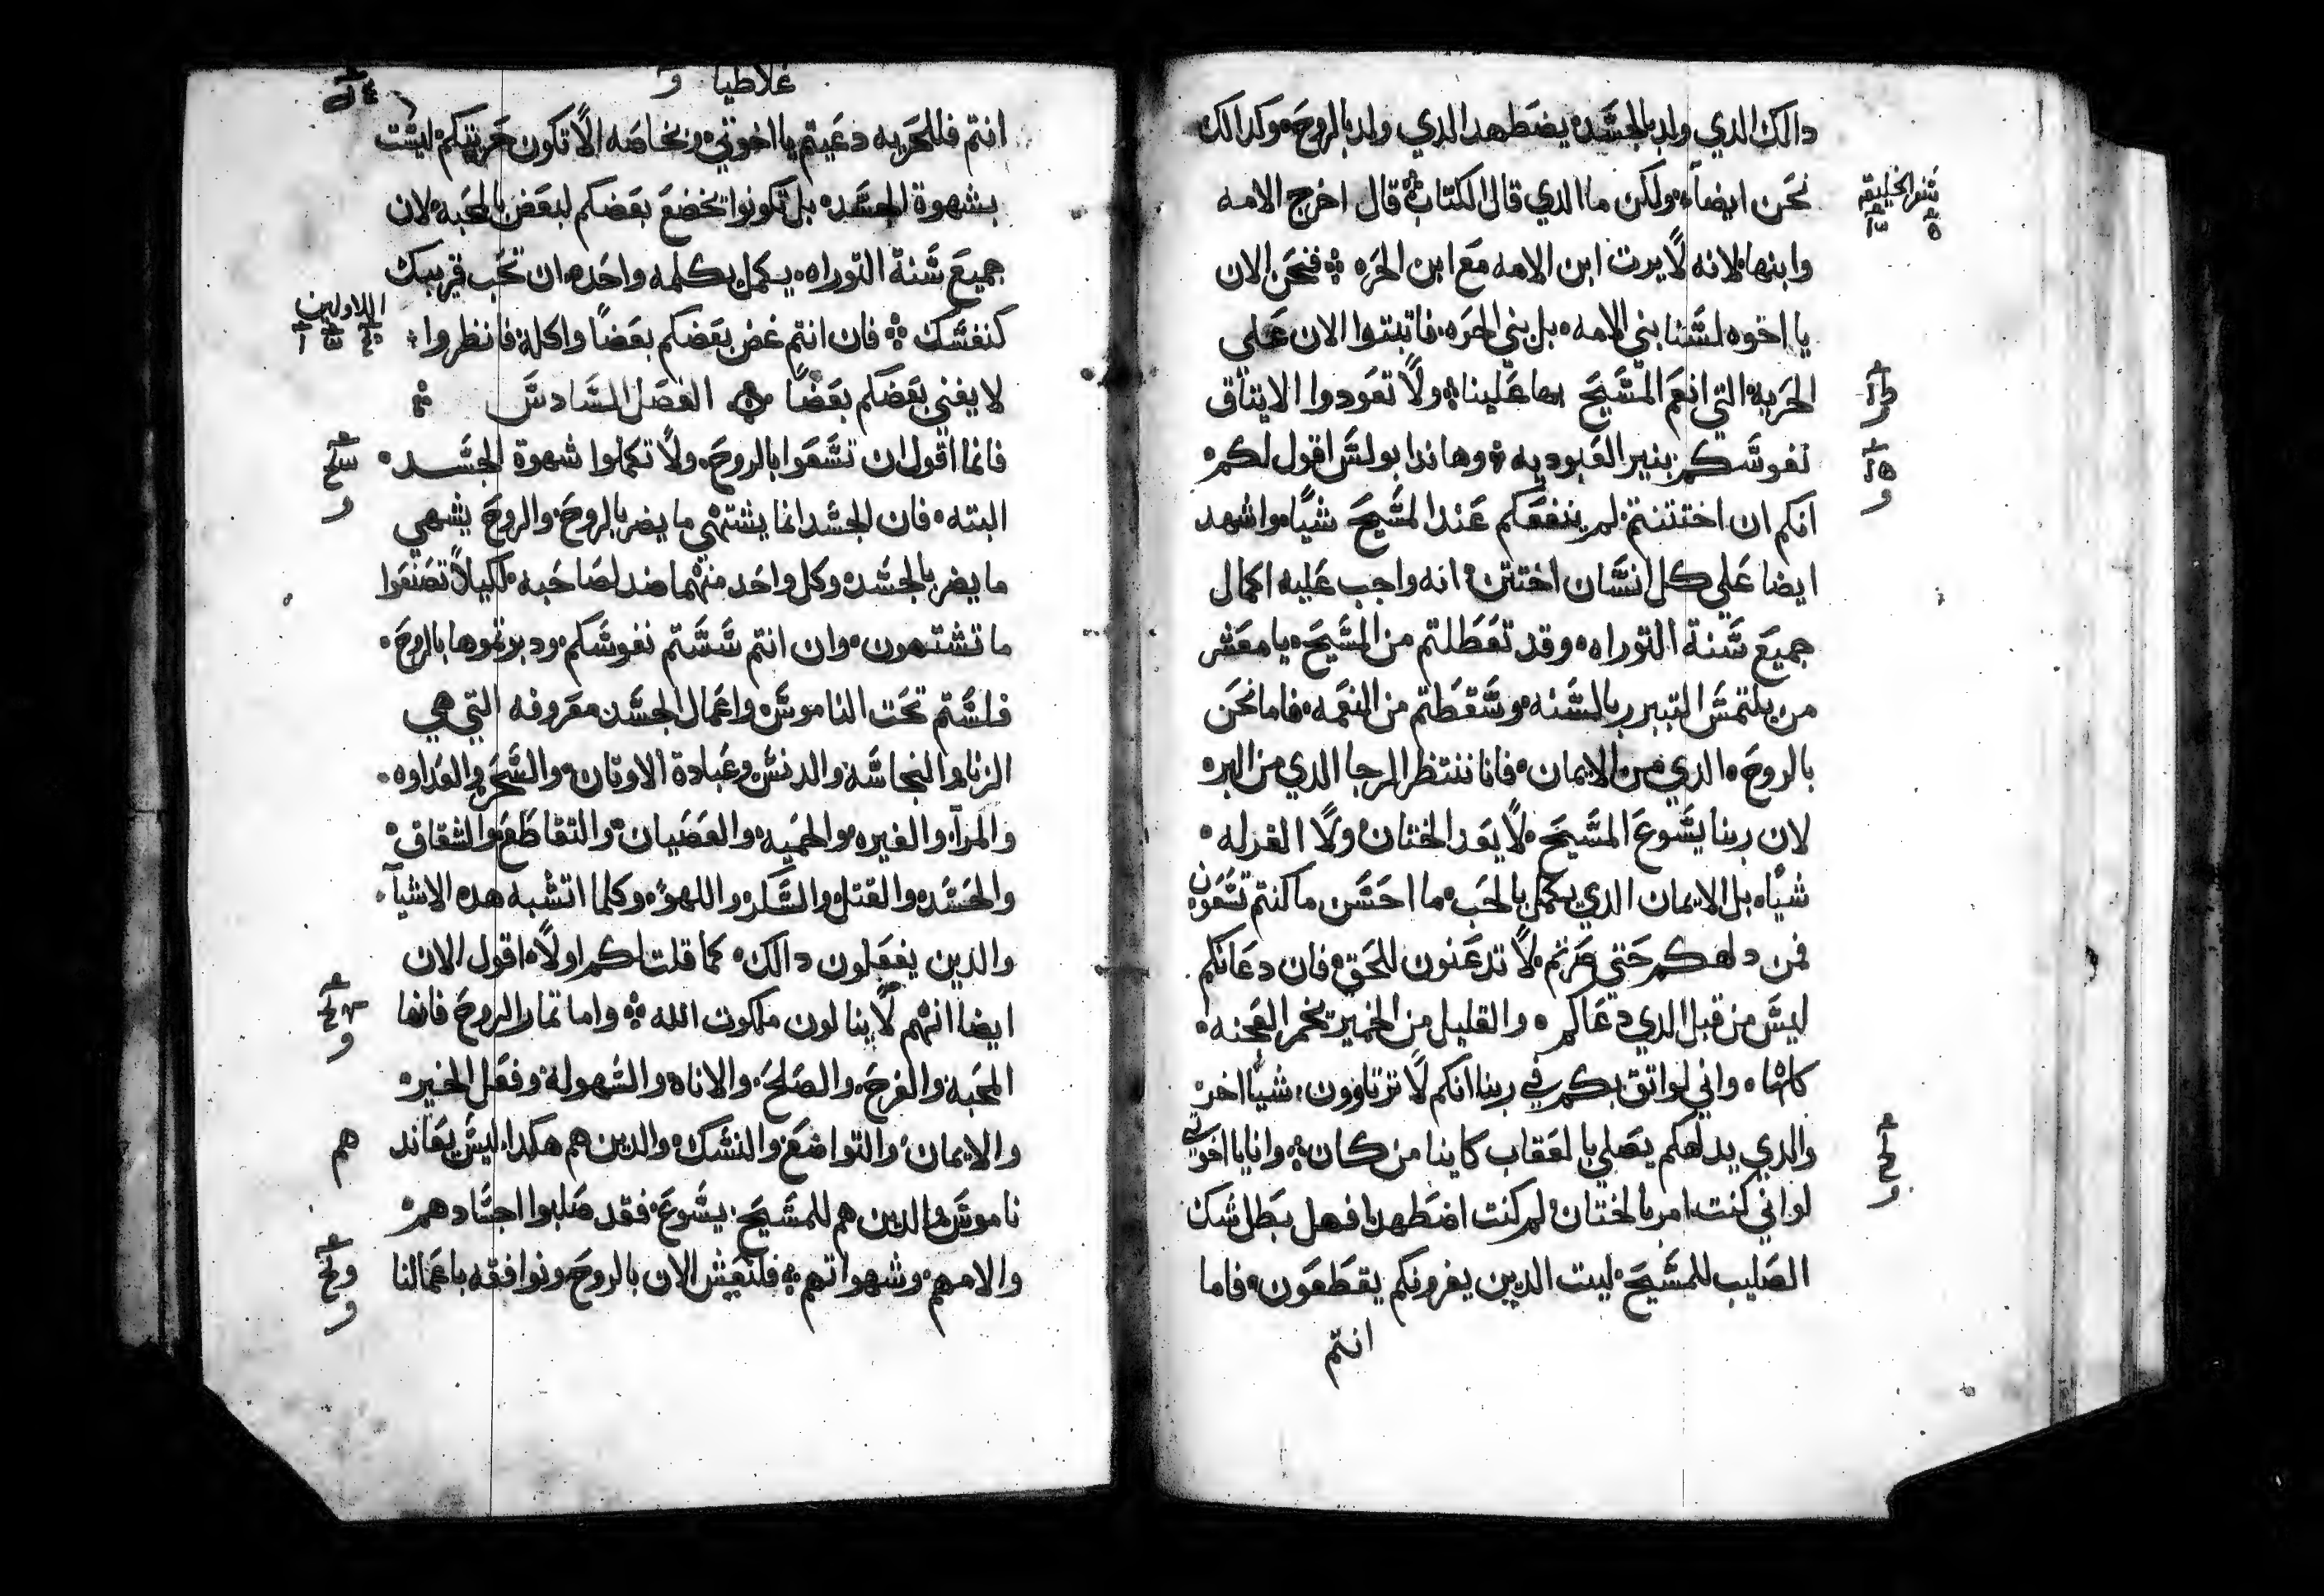 دالك الدي ولد بالجسد يضطهد الدي ولد بالروح وكدالك
نحن ايضا ولكن ما الدي قال الكتاب قال اخرج الامه
سفر الخليقه
وابنها لانه لا يرت ابن الامه مع ابن الحره فنحن الان
يا اخوه لسنا بني الامه بل بني الحره فاتبتوا الان علي
الحريه التي انعم المسيح بها علينا ولا تعودوا الايتاق
نفوسكم بنير العبوديه وها ندا بولس اقول لكم
انكم ان اختتنتم لم ينفعكم عند المسيح شيا واشهد
ايضا علي كل انسان اختتن انه واجب عليه اكمال
جميع سنة التوراه وقد تعطلتم من المسيح يا معشر
من يلتمس التبرر بالسنه وسقطتم من النعمه فاما نحن
بالروح الدي من الايمان فانا ننتظر الرجا الدي من البر
لان ربنا يسوع المسيح لا يعد الختان ولا الغرله
شيا بل الايمان الدي يكمل بالحب ما احسن ما كنتم تسعون
فمن دلهكم حتي صرتم لا تدعنون للحق فان دعاتكم
ليس من قبل الدي دعاكم والقليل من الخمير يخمر العجنه
كلها واني لواتق بكم في ربنا انكم لا ترتاوون شيا اخر
والدي يدلهكم يصلي بالعقاب كاينا من كان وانا يا اخوتي
لو اني كنت امر بالختان لم كنت اضطهد افهل بطل شك
الصليب للمسيح ليت الدين يغرونكم يقطعون فاما
انتم
غلاطيا
انتم فللحريه دعيتم يا اخوتي وبخاصه الا تكون حريتكم ليست
بشهوة الجسد بل تكونوا يخضع بعضكم لبعض بالمحبه لان
جميع سنة التوراه يكمل بكلمه واحده ان تحب قريبك
اللاولين
كنفسك فان انتم عض بعضكم بعضا واكله فانظروا
لا يفني بعضكم بعضا الفصل السادس
فانما اقول ان تسعوا بالروح ولا تكملوا شهوة الجسد
البته فان الجسد انما يشتهي ما يضر بالروح والروح يشهي
ما يضر بالجسد وكل واحد منهما ضد لصاحبه لكيلا تصنعوا
ما تشتهون وان انتم سستم نفوسكم ودبرتموها بالروح
فلستم تحت الناموس واعمال الجسد معروفه التي هي
الزنا والنجاسه والدنس وعبادة الاوتان والسحر والعداوه
والمرآ والغيره والحميه والعصيان والتقاطع والشقاق
والحسد والقتل والسكر واللهو وكلما اتشبه هده الاشيآ
والدين يفعلون دالك كما قلت لكم اولا اقول الان
ايضا انهم لا ينالون ملكوت الله واما تمار الروح فانها
المحبه والفرح والصلح والاناه والسهوله وفعل الخير
والايمان والتواضع والنسك والدين هم هكدا ليس يعاند
هم
ناموس والدين هم للمسيح يسوع فقد صلبوا اجسادهم
والامهم وشهواتهم فلنعيش الان بالروح ونوافقه باعمالنا